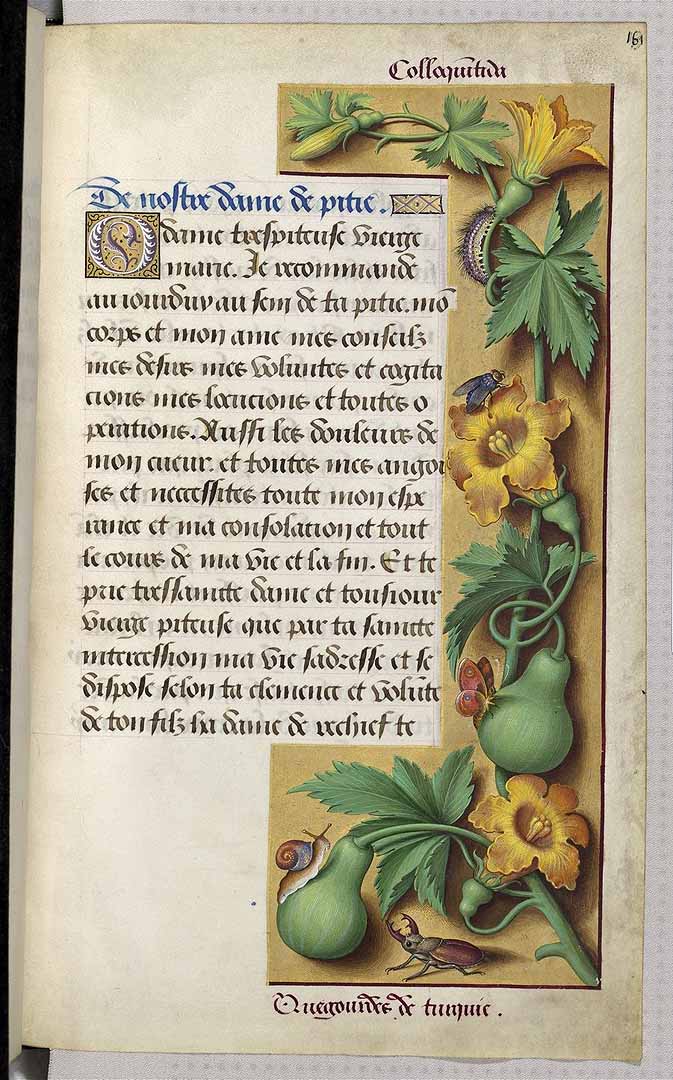 161
Colloquĩtida
De nostre dame de pitie.
O dame trespiteuse vierge
marie. Je recommande
au iourduy au sein de ta pitie. mõ
corps et mon ame mes conseilz
mes desirs mes voluntes et cogita
cions mes locucions et toutes o
perations. Aussi les douleurs de
mon cueur. et toutes mes angoi
sses et necessites toute mon espe
rance et ma consolation et tout
le cours de ma vie et la fin. Et te
prie tressaincte dame et tousiour
vierge piteuse que par ta saincte
intercession ma vie sadresse et se
dispose selon ta clemence et volũte
de ton filz ha dame de rechief te
Quegourdes de turquie.